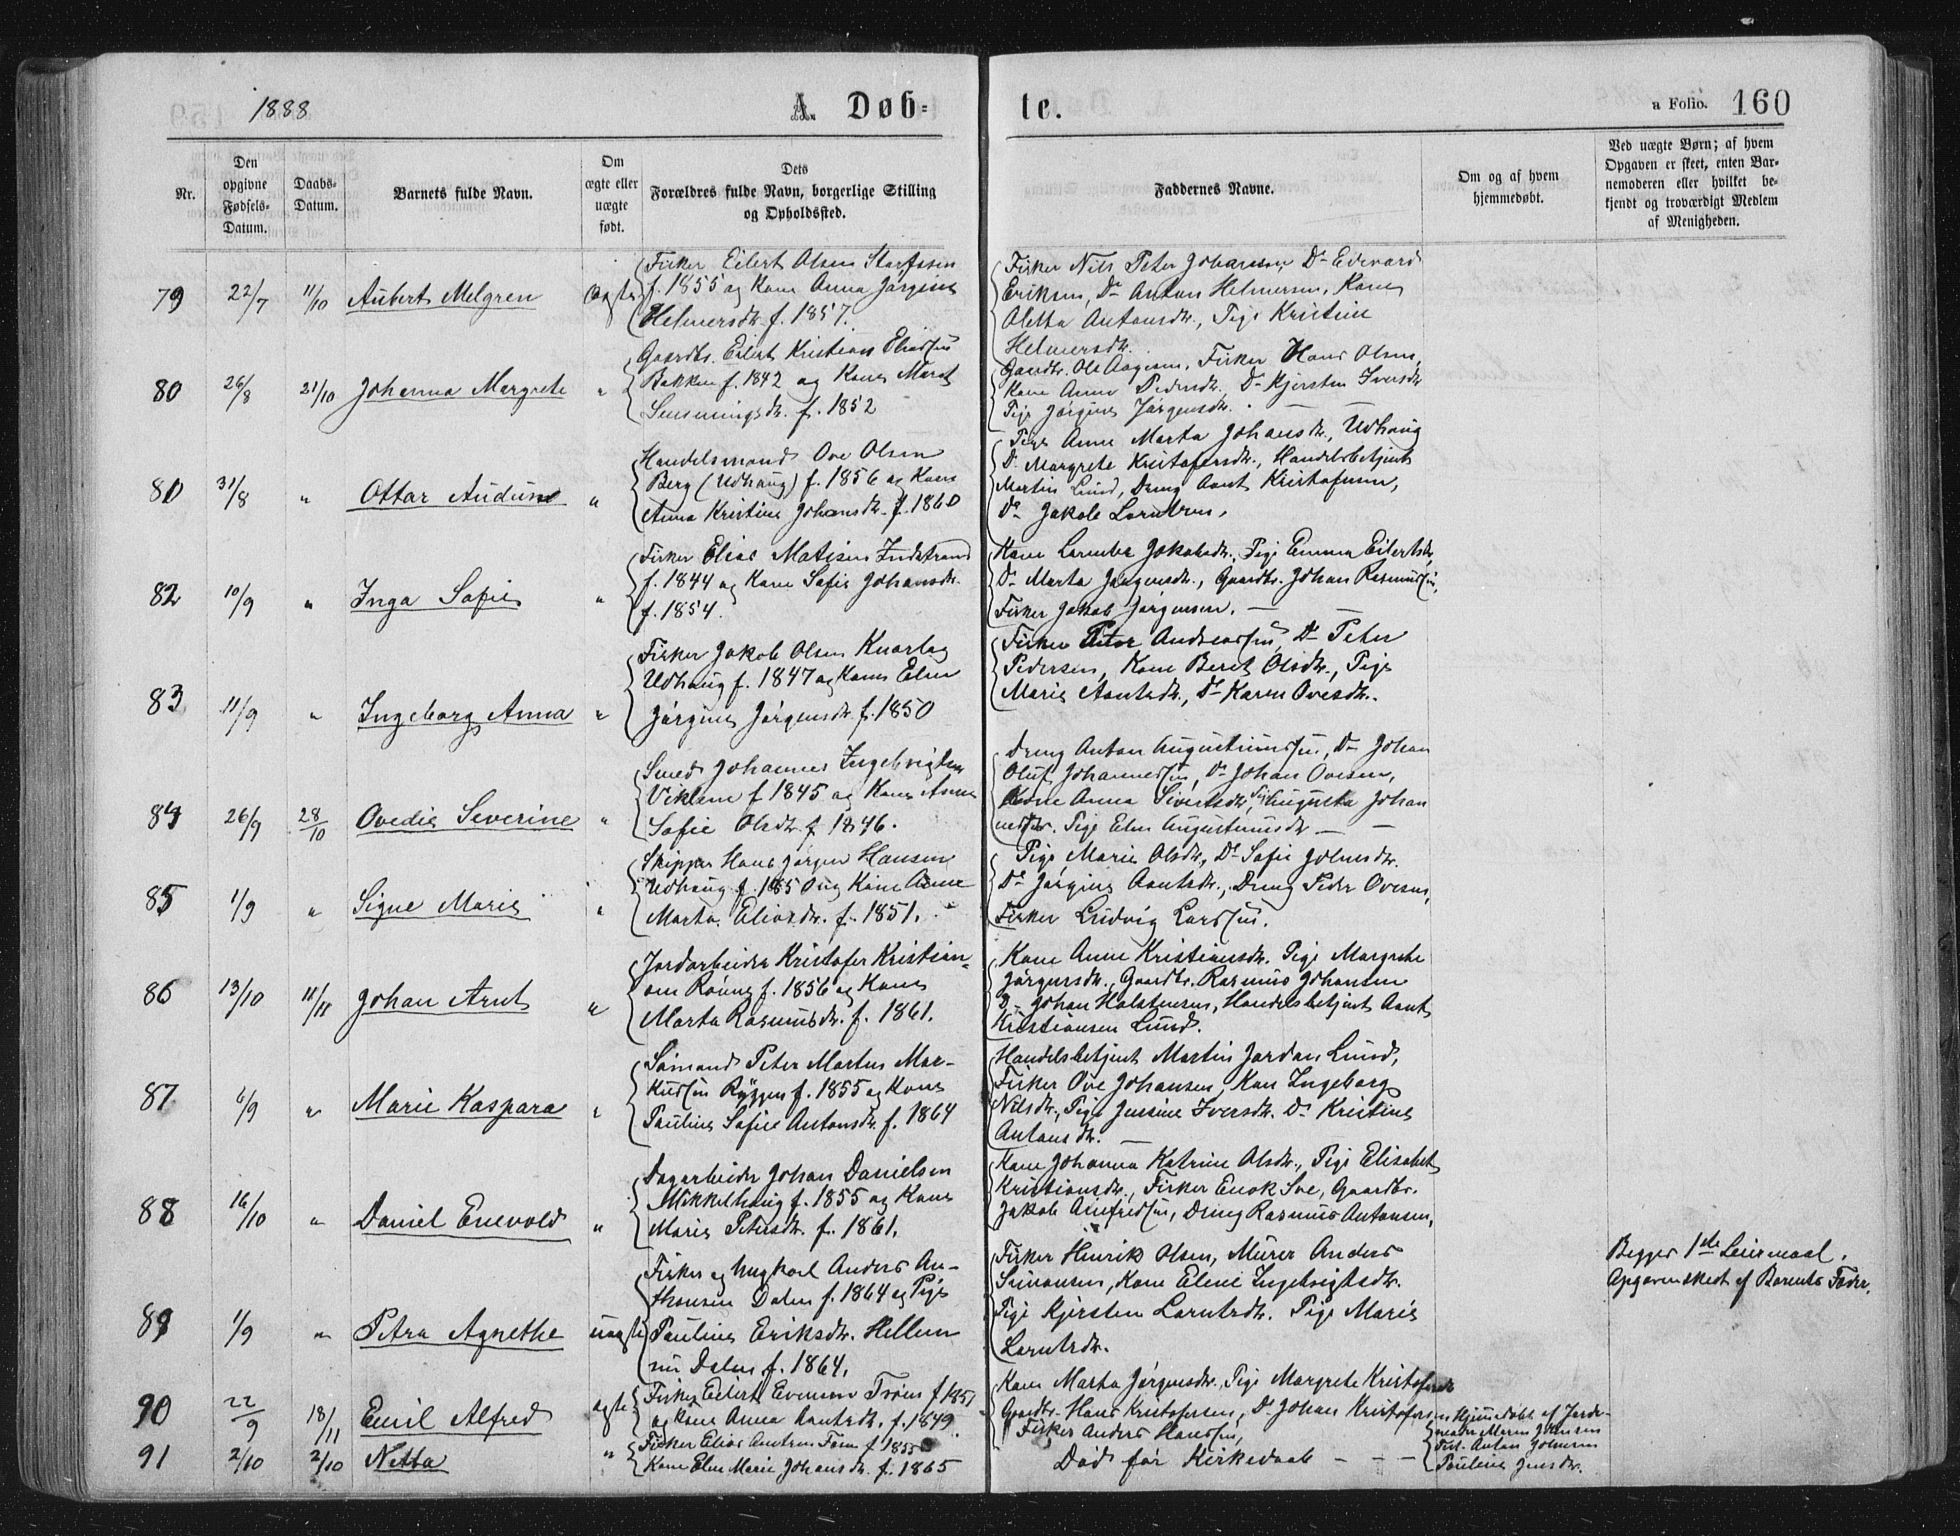 1888
A. Døb=
te.
a Folio. 160
Nr.
Den opgivne Fødsels-Datum.
Daabs-Datum.
Barnets fulde Navn.
Om ægte eller uægte født.
Dets
Forældres fulde Navn, borgerlige Stilling
og Opholdssted.
Faddernes Navne.
Om og af hvem
hjemmedøbt.
Ved uægte Børn; af hvem
Opgaven er skeet, enten Bar-
nemoderen eller hvilket be-
kjendt og troværdigt Medlem
af Menigheden.
79 22/7 11/10 Aubert Melgren Ægte
Fisker Eilert Olsen
f. 1855 og Kone Anna Jørgine
Helmersdr. f. 1857.
Fisker Nils Peter Johansen, Do Edevard
Eriksen, Do Anton Helmersen, Kone
Oletta Antonsdr., Pige Kristine
Helmersdr.
80 26/8 21/10 Johanna Margrete "
Gaardbr. Eilert Kristian Eliassen
Bakken f. 1842 og Kone Maret
f. 1852
Gaardbr. Ole Aagesen, Fisker Hans Olsen,
Kone Anne Pedersdr., Do Kjersten Iversdr.
Pige Jørgine Jørgensdr.
81 31/8 " Ottar Audun "
Handelsmand Ove Olsen
Berg (Udhaug) f. 1856 og Kone
Anna Kristine Johansdr. f. 1860
Pige Anne Marta Johansdr., Udhaug
Do Margrete Kristofersdr., Handelsbetjent
Martin Lund, Dreng Arnt Kristofersen,
Do Jakob Larntsen.
82 10/9 " Inga Sofie "
Fisker Elias Matisen Indstrand
f. 1844 og Kone Sofie Johansdr.
f. 1854.
Kone Jakobsdr., Pige Emma Eilertsdr.,
Do Marta Jørgensdr., Gaardbr. Johan Rasmussen,
Fisker Jakob Jørgensen. — —
83 11/9 " Ingeborg Anna "
Fisker Jakob Olsen
Udhaug f. 1847 og Kone Elen
Jørgine Jørgensdr. f. 1850
Fisker Peter Andreassen, Do Peter
Pedersen, Kone Beret Olsdr., Pige
Marie Arntsdr., Do Karen Ovesdr.
84 26/9 28/10 Ovedie Severine "
Smed Johannes Ingebrigtsen
Viklem f. 1845 og Kone Anne
Sofie Olsdr. f. 1846.
Dreng Anton Augustinussen, Do Johan
Oluf Johannessen, Do Johan Ovesen,
Kone Anna Sivertsdr., Pige Augusta Johan
nesdr. Pige Elen Augustinusdr. — —
85 1/9 " Signe Marie "
Skipper Hans Jørgen Hansen
Udhaug f. 1850 og Kone Anne
Marta Eliasdr. f. 1851.
Pige Marie Olsdr., Do Sofie Johnsdr.
Do Jørgine Arntsdr., Dreng Peder Ovesen,
Fisker Ludvig Larssen.
86 13/10 11/11 Johan Arnt "
Jordarbeider Kristofer Kristian=
sen f. 1856 og Kone
Marta Rasmusdr. f. 1861.
Kone Anne Kristiansdr. Pige Margrete
Jørgensdr., Gaardbr. Rasmus Johansen
Do Johan Holstensen, Handelsbetjent Arnt
Kristiansen Lund.
87 6/9 " Marie Kaspara "
Sømand Peter Martus Mar-
kussen Ryggen f. 1855 og Kone
Pauline Sofie Antonsdr. f. 1864
Handelsbetjent Martin Jordan Lund,
Fisker Ove Johansen, Kone Ingeborg
Nilsdr., Pige Jensine Iversdr. Do Kristine
Antonsdr. —
88 16/10 " Daniel Enevold "
Dagarbeider Johan Danielsen
Mikkelhaug f. 1855 og Kone
Marie Petersdr. f. 1861.
Kone Johanna Katrine Olsdr., Pige Elisabet
Kristiansdr., Fisker Enok Sve, Gaardbr.
Jakob Amfredsen, Dreng Rasmus Antonsen.
89 1/9 " Petra Agnethe uægte
Fisker og Ungkarl Anders An-
thonsen Dalen f. 1864 og Pige
Pauline Eriksdr. Hellem
nu Dalen f. 1864.
Fisker Henrik Olsen, Murer Anders
Simonsen, Kone Elene Ingebrigtsdr.
Pige Kjersten Larntsdr. Pige Marie
Larntsdr.
Begges 1ste Leiermaal.
Opgaven skedt af Barnets Fader.
90 22/9 18/11 Emil Alfred ægte
Fisker Eilert Evensen f. 1851
og Kone Anna Arntsdr. f. 1849.
Kone Marta Jørgensdr., Pige Margrete Kristofersdr.
Gaardbr. Hans Kristofersen, Do Johan Kristofersen
Fisker Anders Hanssen,
91 2/10 2/10 Netta "
Fisker Elias f. 1855
Kone Elen Marie Johansdr. f. 1865
Død før Kirkedaab — — —
Hjemmedøbt af Jorde-
moder Maren Johnsen
Test. Anton Johnsen
Pauline Jensdr.